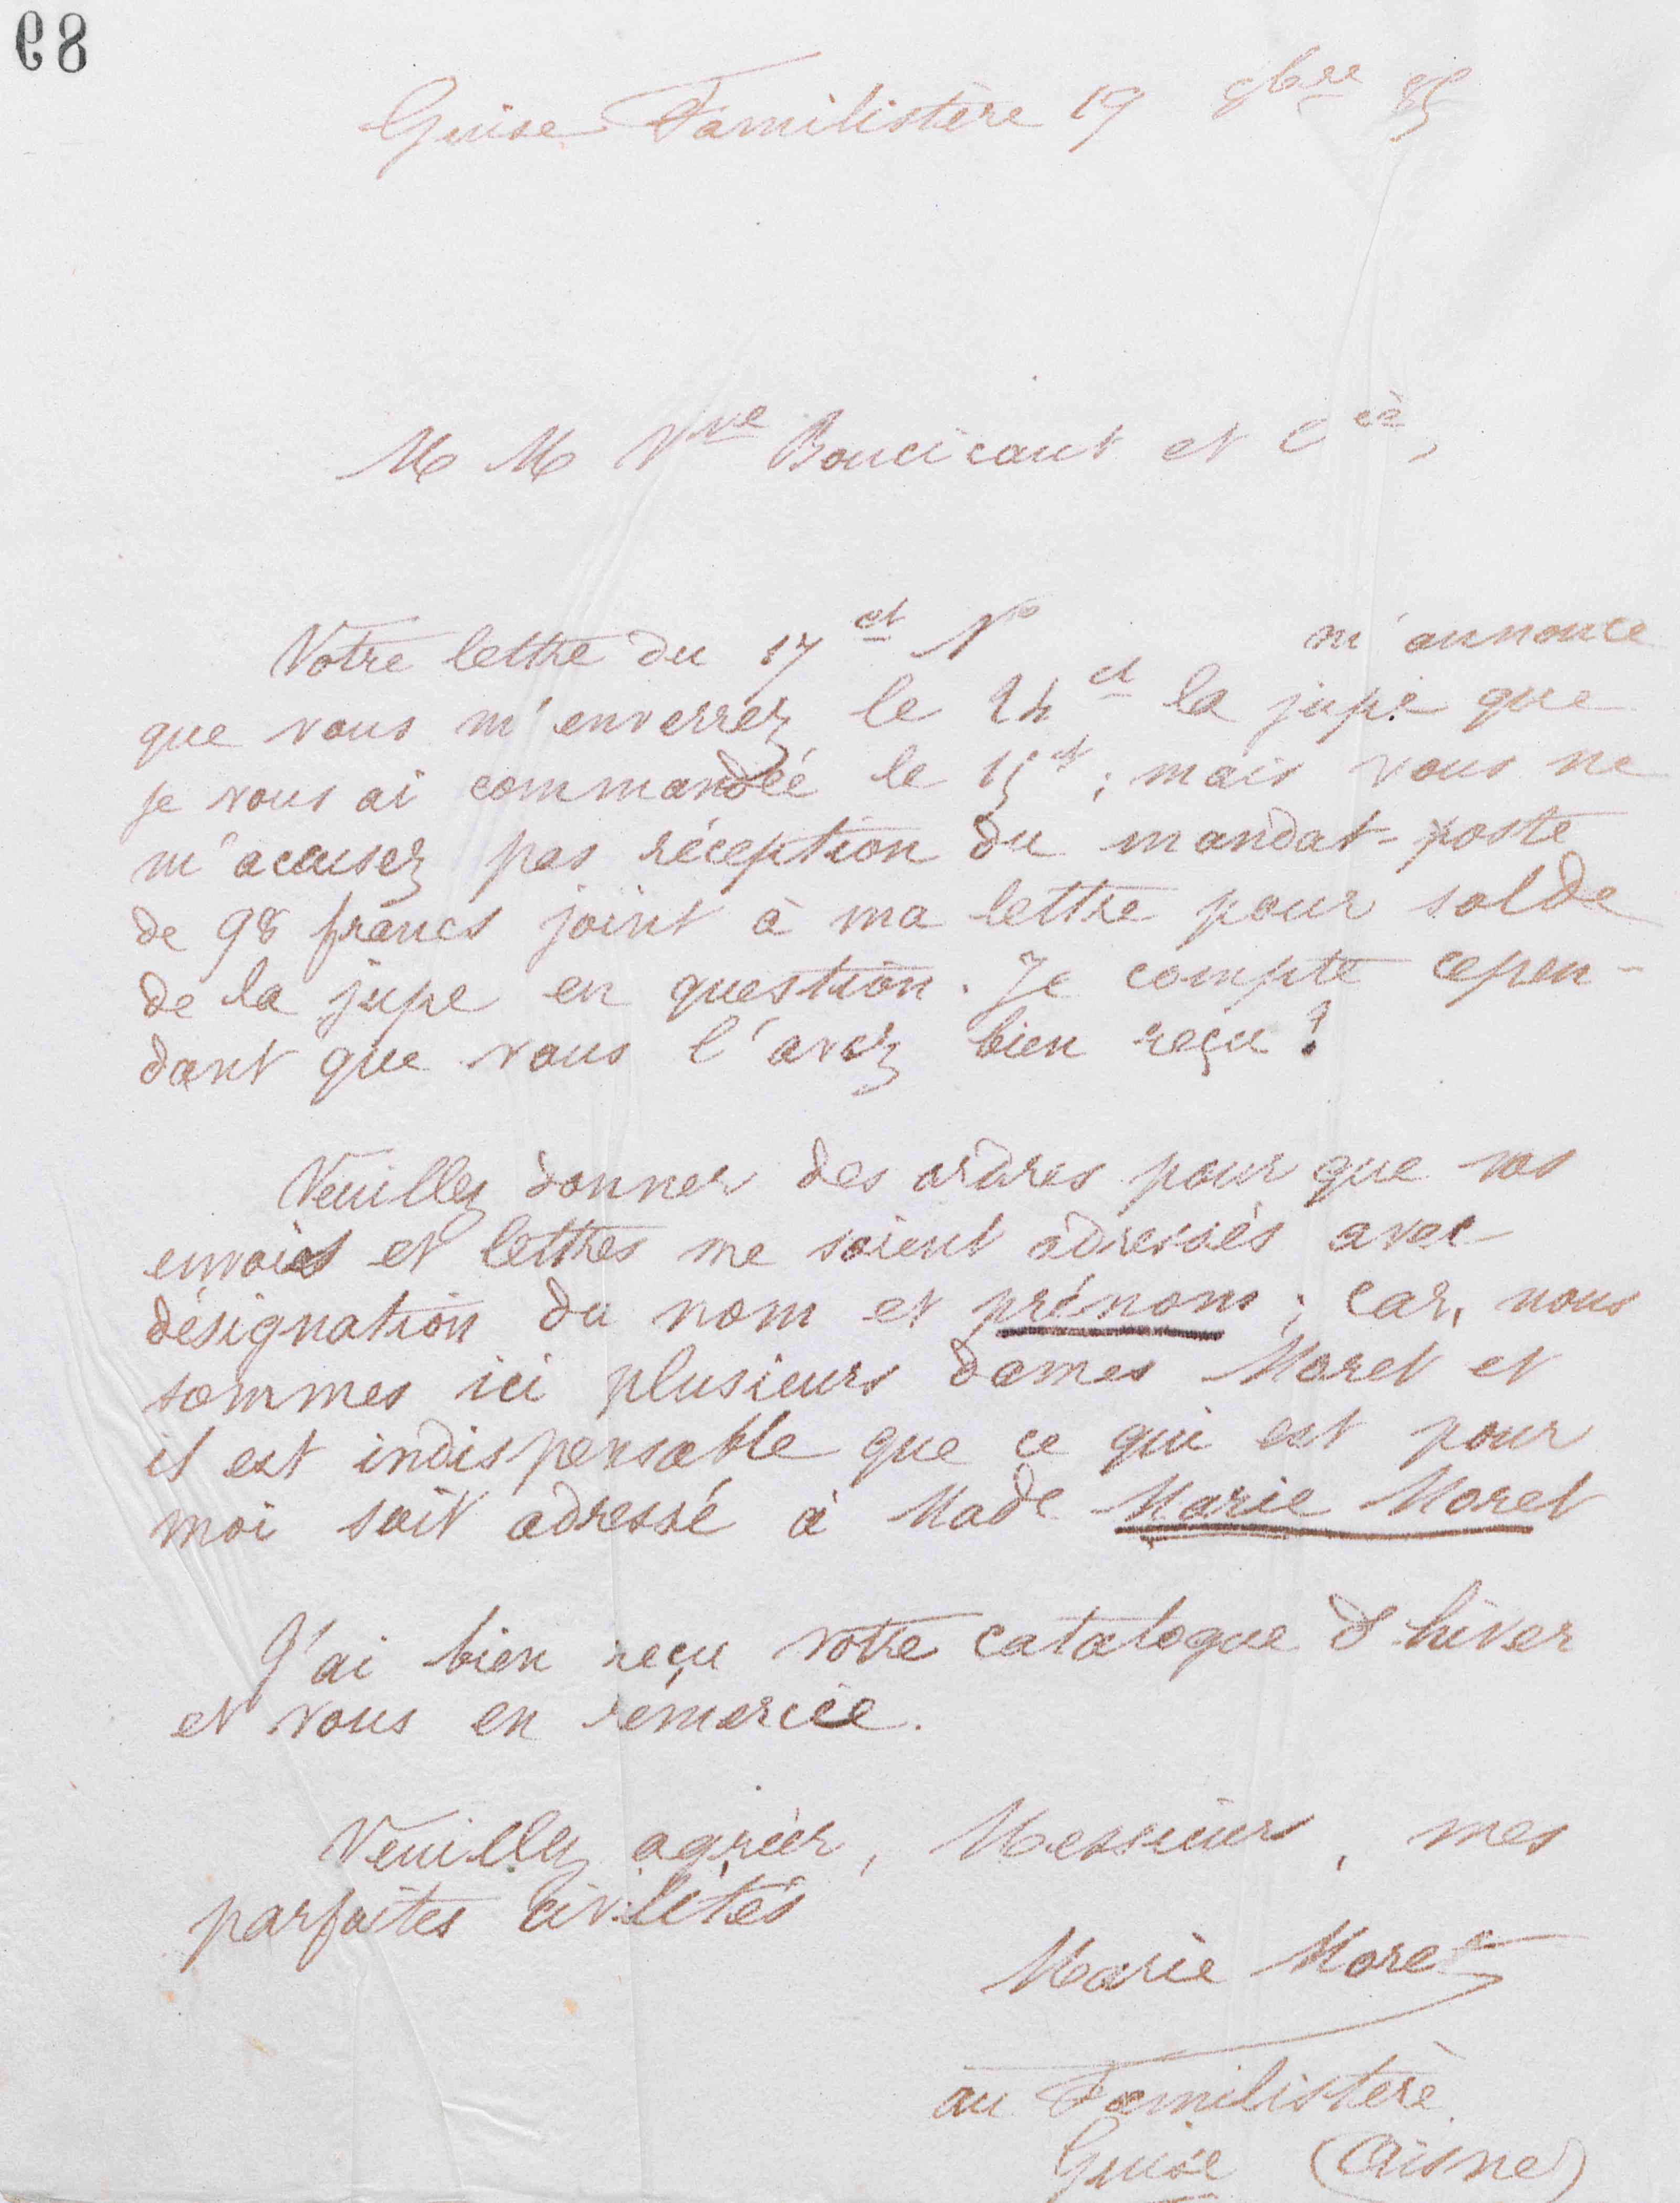 89
Guise Familistère 19 8bre 85
M M Vve Boucicaut et Cie,
Votre lettre du 17 ct No m'annonce
que vous m'enverrez le 24 ct la jupe que
je vous ai commandée le 15 ct ; mais vous ne
m'accusez pas réception du mandat-poste
de 98 francs joint à ma lettre pour solde
de la jupe en question. Je compte cepen-
dant que vous l'avez bien reçu ?
Veuillez donner des ordres pour que vos
envois et lettres me soient adressés avec
désignation du nom et prénom ; car, nous
sommes ici plusieurs dames Moret et
il est indispensable que ce qui est pour
moi soit adressé à Made Marie Moret
J'ai bien reçu votre catalogue d'hiver
et vous en remercie.
Veuillez agréer, Messieurs, mes
parfaites civilités
Marie Moret
au Familistère
Guise (Aisne)